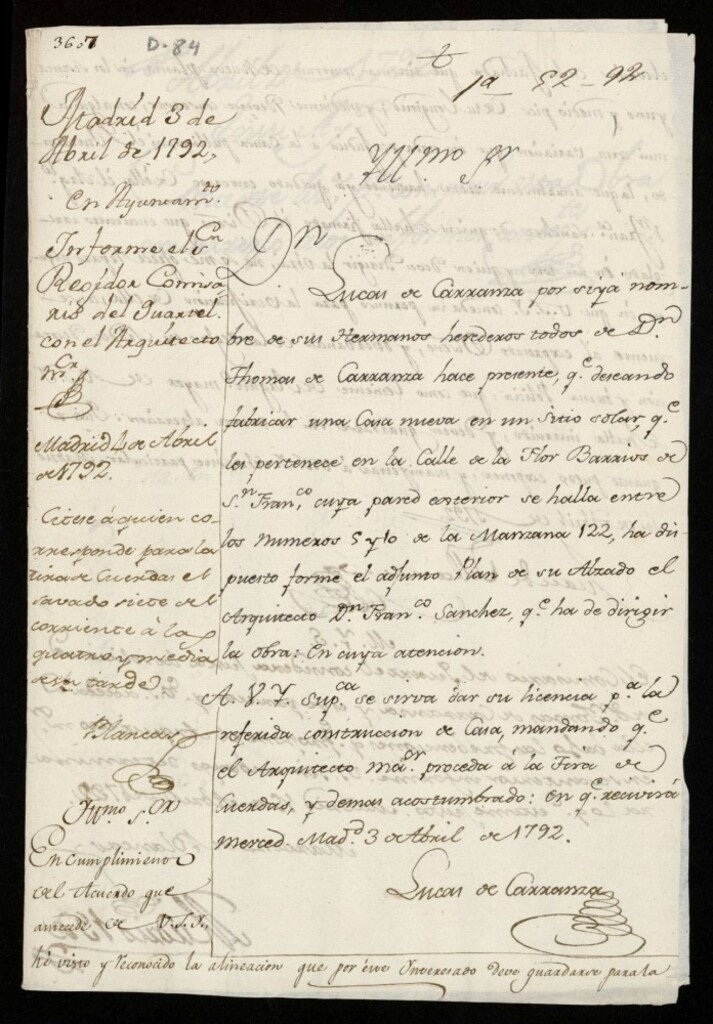 3607 D-84
1a 52-92
Madrid 3 de
Abril de 1792,
En Ayuntam.to
Informe el S.n
Regidor Comisa
rio del Quartel
con el Arquitecto
m.or
Madrid 4 de Abril
de 1792.
Citese à quien co-
rresponde para la
tira de Cuerdas el
savado siete del
corriente à las
quatro y media
de su tarde
Blancas
Yll.mo S.or
En cumplimiento
del Acuerdo que
antecede de V.S.Y.
Yll.mo S.or
D.n
Lucas de Carranza por si, y a nom-
bre de sus Hermanos herederos todos de D.n
Thomas de Carranza hace presente, q.e deseando
fabricar una Casa nueva en un sitio solar, q.e
les pertenece en la Calle de la Flor Barrios de
S.n Fran.co cuya pared exterior se halla entre
los numeros 5 y 10 de la Manzana 122, ha dis
puesto forme el adjunto Plan de su Alzado el
Arquitecto D.n Fran.co Sanchez, q.e ha de dirigir
la obra: En cuya atencion.
A. V. Y. Sup.ca se sirva dar su licencia p.a la
referida construccion de Casa, mandando q.e
el Arquitecto ma.or proceda à la Tira de
Cuerdas, y demas acostumbrado: en q.e recivirá
merced. Mad.d 3 de Abril de 1792.
Lucas de Carranza
hé visto y reconocido la alineacion que por este Ynteresado deve guardarse para la